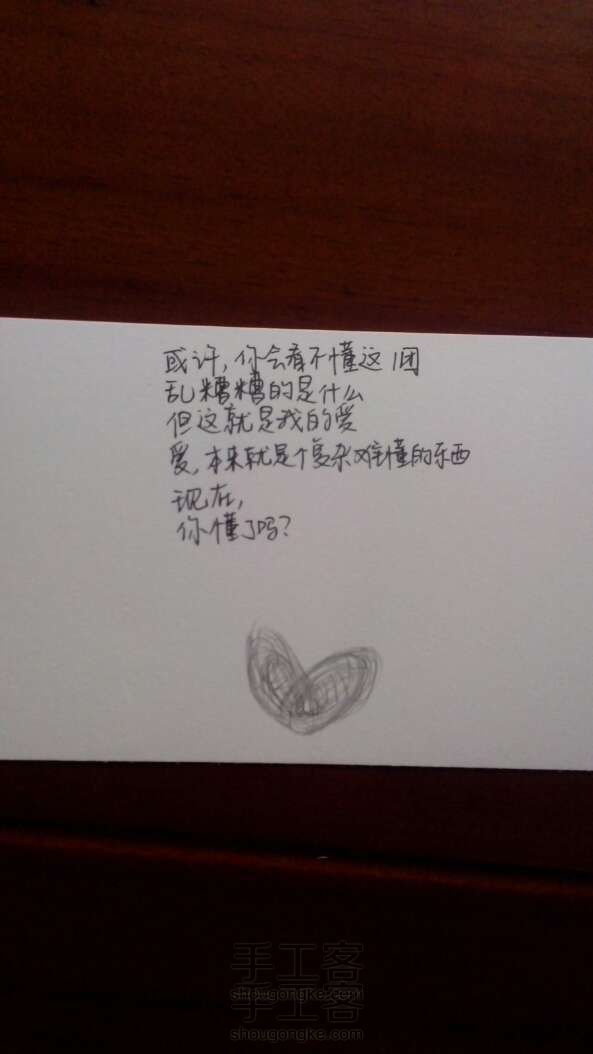 或许，你会看不懂这1团
乱糟糟的是什么
但这就是我的爱
爱，本来就是个复杂难懂的东西
现在，
你懂了吗？
手工客
shougongke.com
手工客
shougongke.com